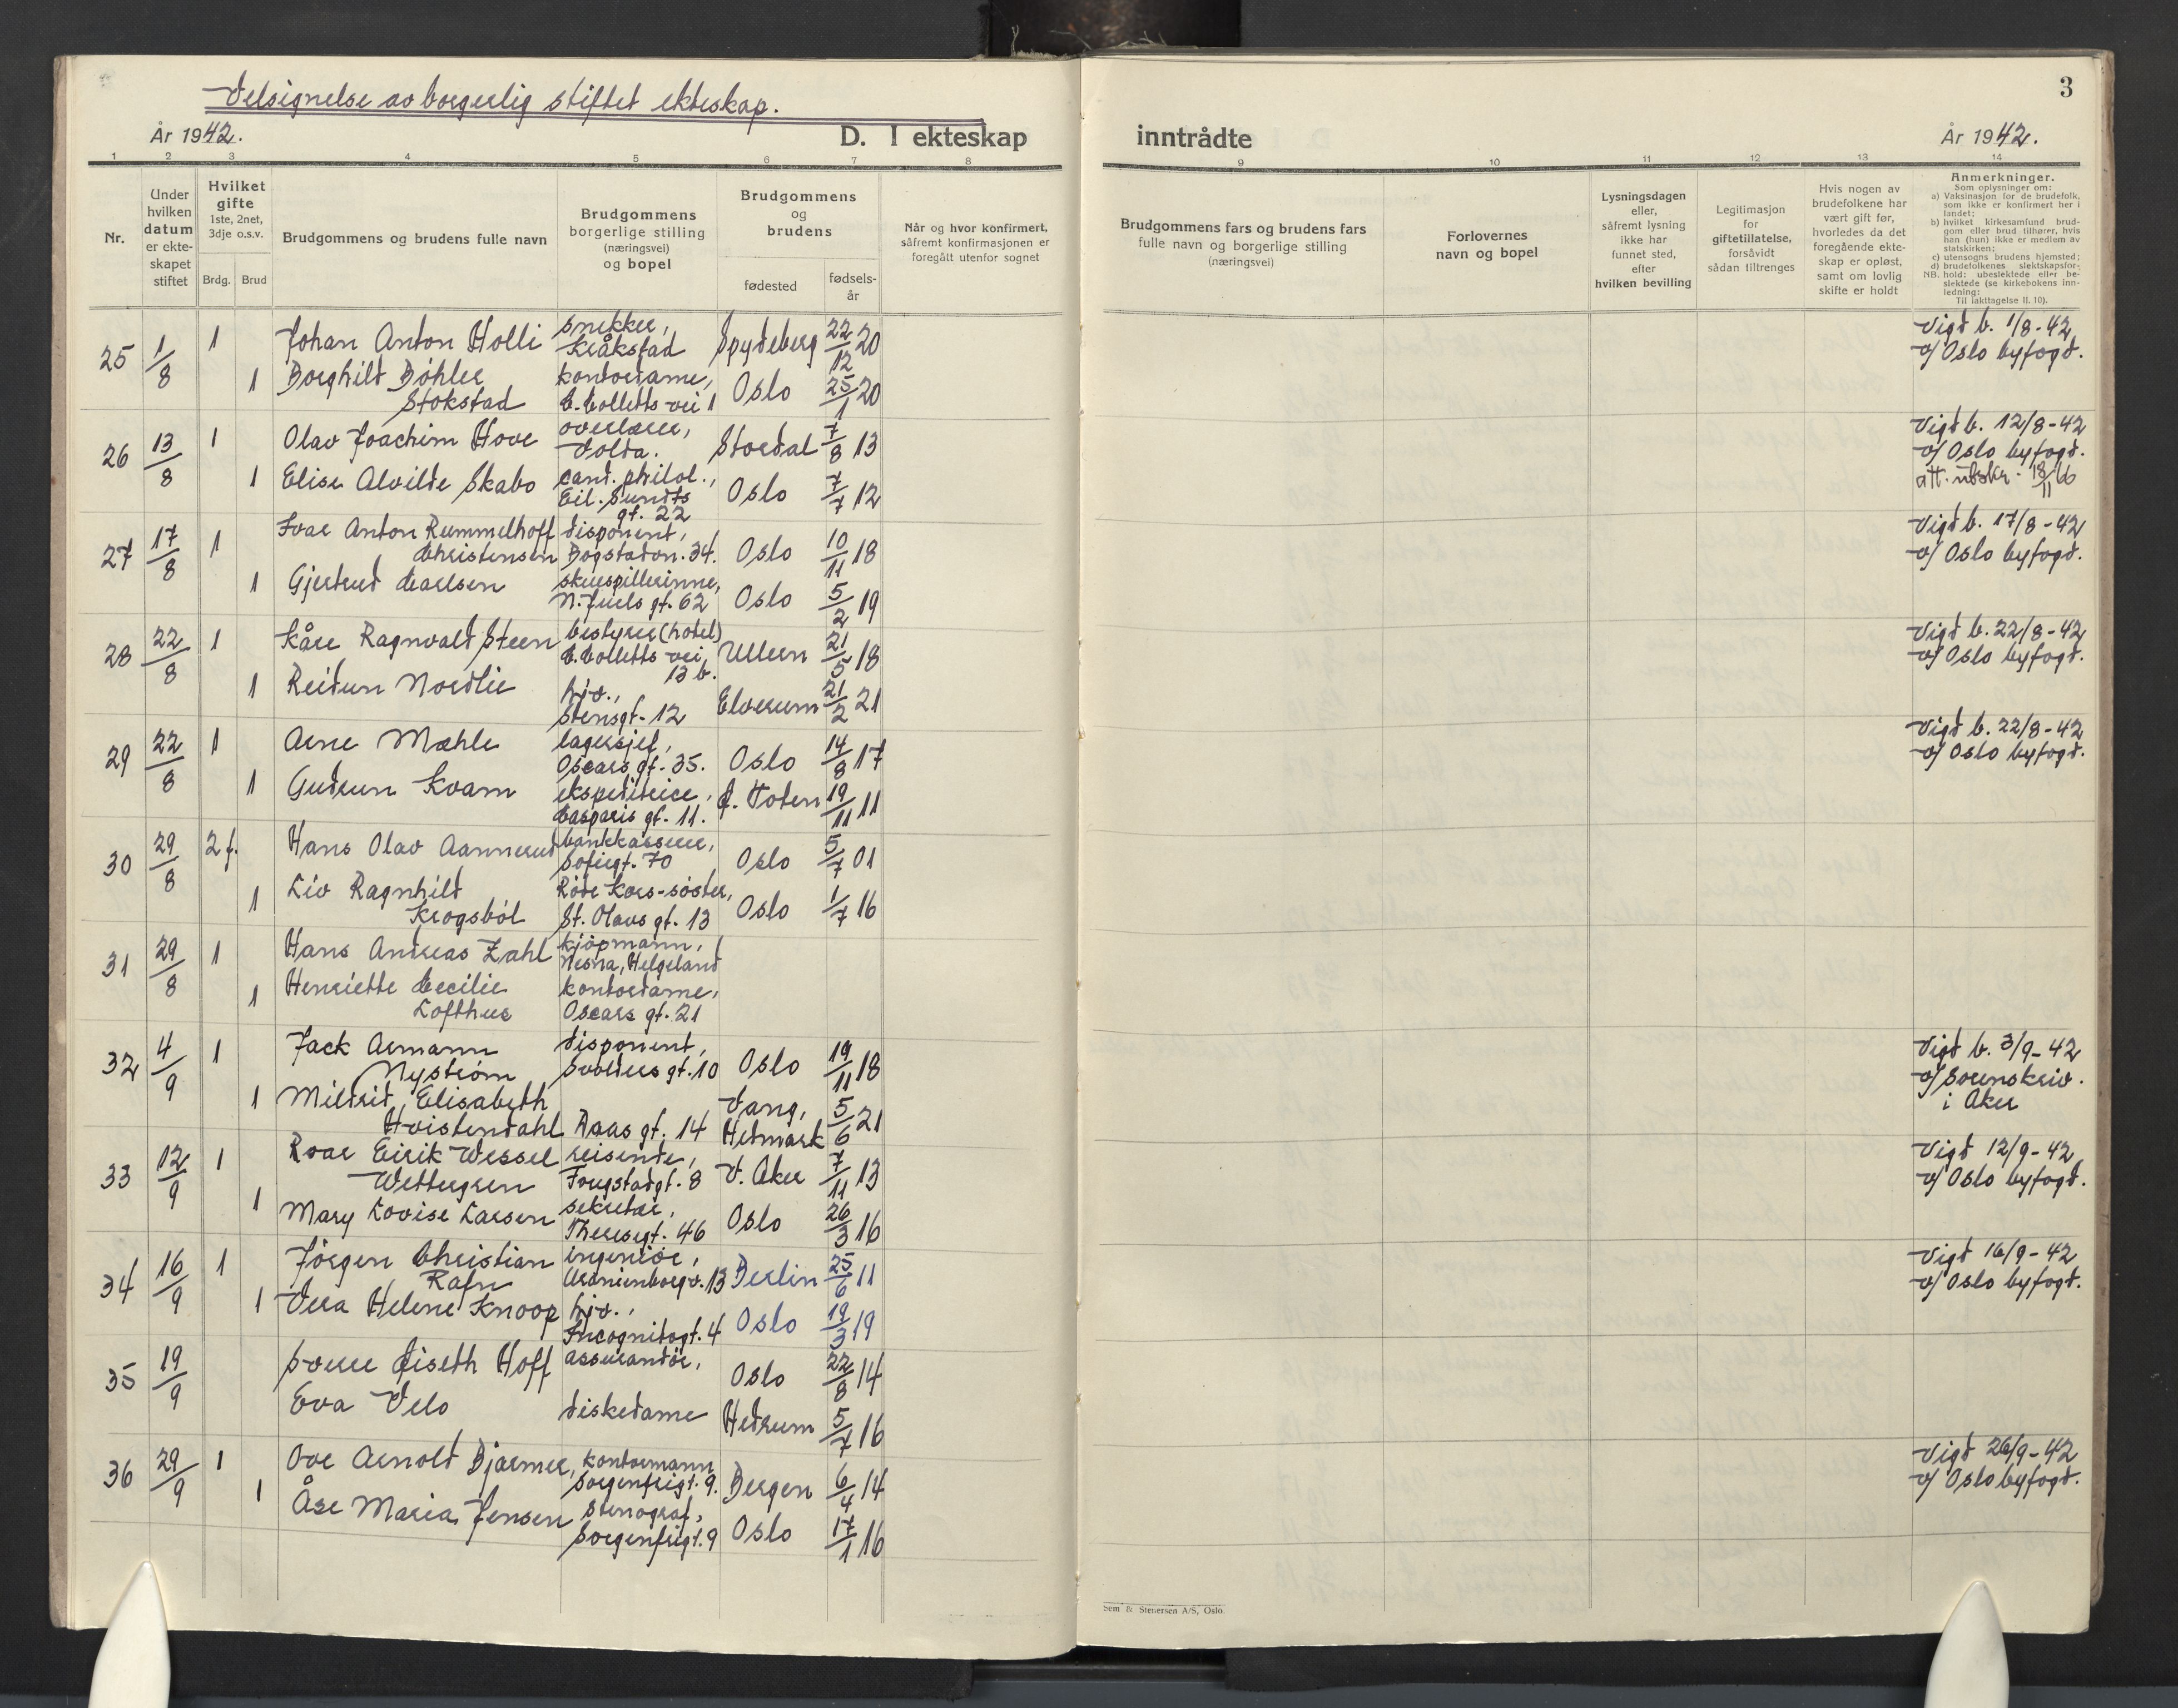 Velsignelse av borgerlig stiftet ekteskap.
3
År 1942.
D. I ekteskap
inntrådte
År 1942.
1 2 3 4 5 6 7 8 9 10 11 12 13 14
Nr.
Under hvilken datum er ekte-skapet stiftet
Hvilket gifte
1ste, 2net, 3dje o.s.v.
Brdg. Brud
Brudgommens og brudens fulle navn
Brudgommens borgerlige stilling (næringsvei) og bopel
Brudgommens og brudens
fødested
fødsels-år
Når og hvor konfirmert, såfremt konfirmasjonen er foregått utenfor sognet
Brudgommens fars og brudens fars fulle navn og borgerlige stilling (næringsvei)
Forlovernes navn og bopel
Lysningsdagen eller, såfremt lysning ikke har funnet sted, efter hvilken bevilling
Legitimasjon for giftetillatelse, forsåvidt sådan tiltrenges
Hvis nogen av brudefolkene har vært gift før, hvorledes da det foregående ekte-skap er opløst, samt om lovlig skifte er holdt
Anmerkninger.
Som oplysninger om:
a) Vaksinasjon for de brudefolk, som ikke er konfirmert her i landet;
b) hvilket kirkesamfund brud-gom eller brud tilhører, hvis han (hun) ikke er medlem av statskirken;
c) utensogns brudens hjemsted;
d) brudefolkenes slektskapsfor-hold: ubeslektede eller be-slektede (se kirkebokens inn-ledning:
NB.
Til iakttagelse II. 10).
25 1/8 1 Johan Anton Holli snekker, Kråkstad Spydeberg 22/12 20 Vigd b. 1/8-42 v/ Oslo byfogd.
1 Borghild Bøhler Stokstad kontordame, C. Colletts vei 1 Oslo 25/1 20
26 13/8 1 Olav Joachim Hove overlærer, Volda. Stordal 7/8 13 Vigd b. 12/8-42 v/ Oslo byfogd.
1 Elise Alvilde Skabo cand. philol., Eil. Sundts gt. 22 Oslo 7/7 12 att. utskr. 18/11 66
27 17/8 1 Ivar Anton Rummelhoff Christensen disponent, Bogstadvn. 34. Oslo 10/11 18 Vigd b. 17/8-42 v/ Oslo byfogd.
1 Gjertrud Carlsen skuespillerinne, N. Juels gt. 62 Oslo 5/2 19
28 22/8 1 Kåre Ragnvald Steen bestyrer (hotel) C. Colletts vei 13 b. Ullern 21/5 18 Vigd b. 22/8-42 v/ Oslo byfogd.
1 Reidun Nordlie hjv., Stensgt. 12 Elverum 21/2 21
29 22/8 1 Arne Mæhle lagersjef, Oscars gt. 35. Oslo 14/8 17 Vigd b. 22/8-42 v/ Oslo byfogd.
1 Gudrun Kvam ekspeditrice, Casparis gt. 11. Ø. Toten 19/11 11
30 29/8 2 f. Hans Olav Aannerud bankkasserer, Sofiegt. 70 Oslo 5/7 01
1 Liv Ragnhild Krogsbøl Røde Kors-søster, St. Olavs gt. 13 Oslo 1/7 16
31 29/8 1 Hans Andreas Zahl kjøpmann, Nesna, Helgeland
1 Henriette Cecilie Lofthus kontordame, Oscars gt. 21
32 4/9 1 Jack Armann Nystrøm disponent, Svolders gt. 10 Oslo 19/11 18 Vigd b. 3/9-42 v/ Sorenskriv. i Aker
1 Mildrid Elisabeth Hvistendahl Raas gt. 14 Vang, Hedmark 5/6 21
33 12/9 1 Roar Eirik Wessel Wettergren reisende, Fougstadgt. 8 V. Aker 7/11 13 Vigd 12/9-42 v/ Oslo byfogd.
1 Mary Lovise Larsen sekretær, Theresgt. 46 Oslo 26/3 16
34 16/9 1 Jörgen Christian Rafn ingeniør, Uranienborgv. 13 Berlin 25/6 11 Vigd 16/9-42 v/ Oslo byfogd.
1 Vera Helene Knoop hjv., Incognitogt. 4 Oslo 19/3 19
35 19/9 Sverre Øiseth Hoff assurandør, Oslo 22/8 14
Eva Velo diskedame Hedrum 5/7 16
36 29/9 1 Ove Arnold Bjarmer, kontormann Sorgenfrigt. 9. Bergen 6/4 14 Vigd 26/9-42 v/ Oslo byfogd.
1 Åse Maria Jensen stenograf, Sorgenfrigt. 9 Oslo 17/1 16
Sem & Stenersen A/S, Oslo.